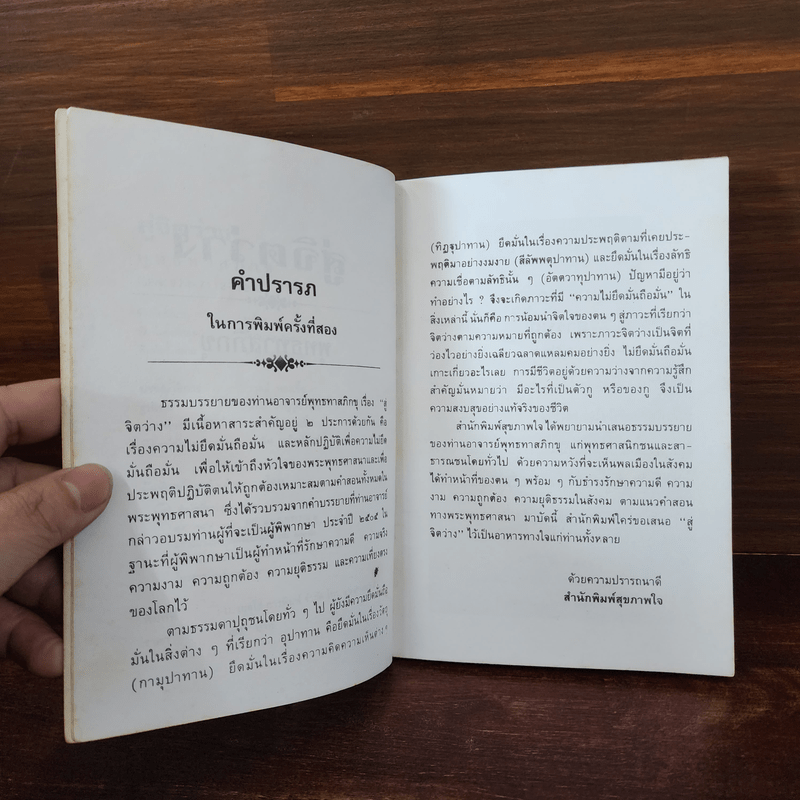 คำปรารภ
ในการพิมพ์ครั้งที่สอง
ธรรมบรรยายของท่านอาจารย์พุทธทาสภิกขุ เรื่อง “สู่
จิตว่าง” มีเนื้อหาสาระสำคัญอยู่ ๒ ประการด้วยกัน คือ
เรื่องความไม่ยึดมั่นถือมั่น และหลักปฏิบัติเพื่อความไม่ยึด
มั่นถือมั่น เพื่อให้เข้าถึงหัวใจของพระพุทธศาสนาและเพื่อ
ประพฤติปฏิบัติตนให้ถูกต้องเหมาะสมตามคำสอนทั้งหมดใน
พระพุทธศาสนา ซึ่งได้รวบรวมจากคำบรรยายที่ท่านอาจารย์
กล่าวอบรมท่านผู้ที่จะเป็นผู้พิพากษา ประจำปี ๒๕๐๔ ใน
ฐานะที่ผู้พิพากษาเป็นผู้ทำหน้าที่รักษาความดี ความจริง
ความงาม ความถูกต้อง ความยุติธรรม และความเที่ยงตรง
ของโลกไว้
ตามธรรมดาปุถุชนโดยทั่ว ๆ ไป ผู้ยังมีความยึดมั่นถือ
มั่นในสิ่งต่าง ๆ ที่เรียกว่า อุปาทาน คือยึดมั่นในเรื่องวัตถุ
(กามุปาทาน) ยึดมั่นในเรื่องความคิดความเห็นต่าง ๆ
(ทิฏฐุปาทาน) ยึดมั่นในเรื่องความประพฤติตามที่เคยประ-
พฤติมาอย่างงมงาย (สีลัพพตุปาทาน) และยึดมั่นในเรื่องลัทธิ
ความเชื่อตามลัทธินั้น ๆ (อัตตวาทุปาทาน) ปัญหามีอยู่ว่า
ทำอย่างไร ? จึงจะเกิดภาวะที่มี “ความไม่ยึดมั่นถือมั่น” ใน
สิ่งเหล่านี้ นั่นก็คือ การน้อมนำจิตใจของตน ๆ สู่ภาวะที่เรียกว่า
จิตว่างตามความหมายที่ถูกต้อง เพราะภาวะจิตว่างเป็นจิตที่
ว่องไวอย่างยิ่งเฉลียวฉลาดแหลมคมอย่างยิ่ง ไม่ยึดมั่นถือมั่น
เกาะเกี่ยวอะไรเลย การมีชีวิตอยู่ด้วยความว่างจากความรู้สึก
สำคัญมั่นหมายว่า มีอะไรที่เป็นตัวกู หรือของกู จึงเป็น
ความสงบสุขอย่างแท้จริงของชีวิต
สำนักพิมพ์สุขภาพใจ ได้พยายามนำเสนอธรรมบรรยาย
ของท่านอาจารย์พุทธทาสภิกขุ แก่พุทธศาสนิกชนและสา-
ธารณชนโดยทั่วไป ด้วยความหวังที่จะเห็นพลเมืองในสังคม
ได้ทำหน้าที่ของตน ๆ พร้อม ๆ กับธำรงรักษาความดี ความ
งาม ความถูกต้อง ความยุติธรรมในสังคม ตามแนวคำสอน
ทางพระพุทธศาสนา มาบัดนี้ สำนักพิมพ์ใคร่ขอเสนอ “สู่
จิตว่าง” ไว้เป็นอาหารทางใจแก่ท่านทั้งหลาย
ด้วยความปรารถนาดี
สำนักพิมพ์สุขภาพใจ